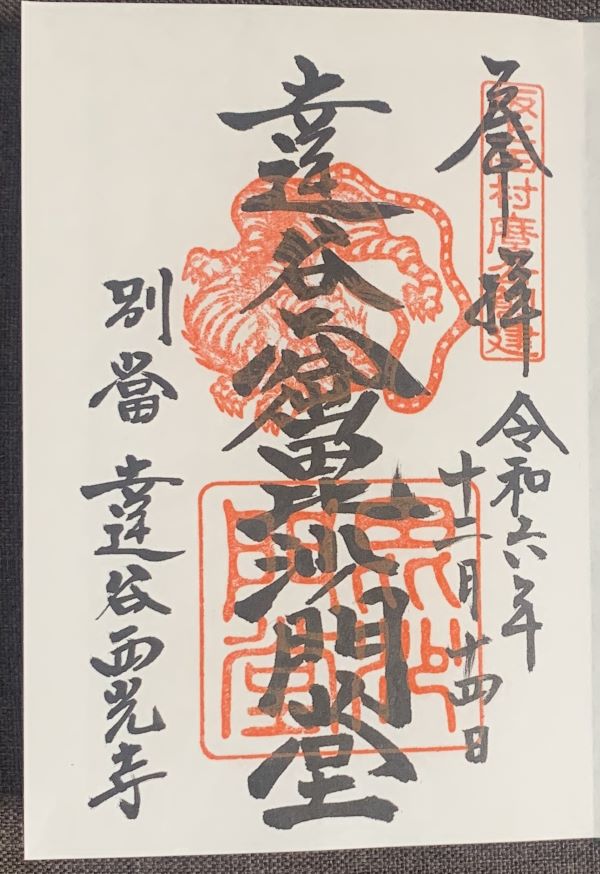 奉拝
坂上田村麿公創建
令和六年
十二月十四日
達谷窟毘沙門堂
毘沙
門堂
別當 達谷西光寺